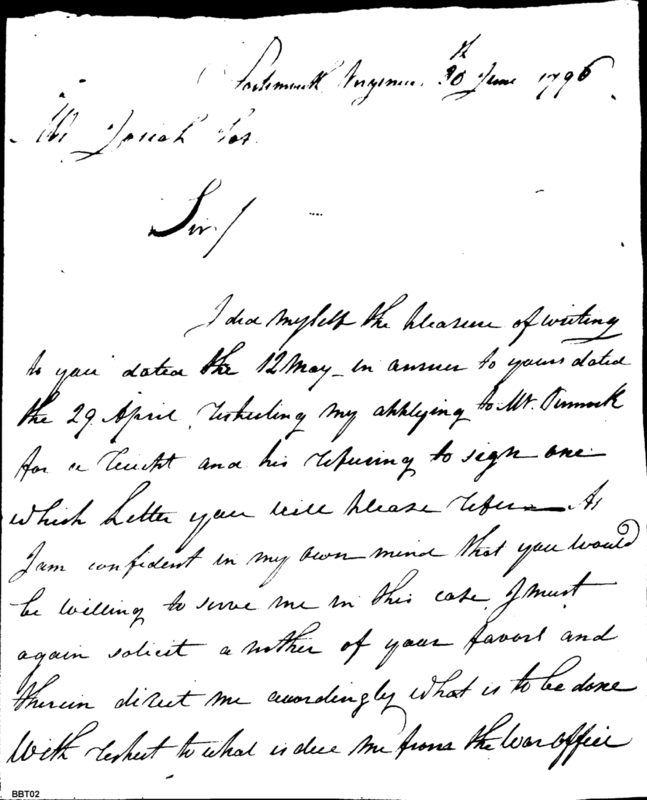 Portsmouth Virginia 30th June 1796
Mr Josiah Fox
Sir/
I did myself the pleasure of writing
to you dated the 12 May in answer to yours dated
the 29 April, respecting my applying to Mr.
for a receipt and his refusing to sign one
which Letter you will please refer — As
I am confident in my own mind that you would
be willing to serve me in this case, I must
again solicit a nother of your favors and
therein direct me accordingly what is to be done
With respect to what is due me from the War office
BBT02